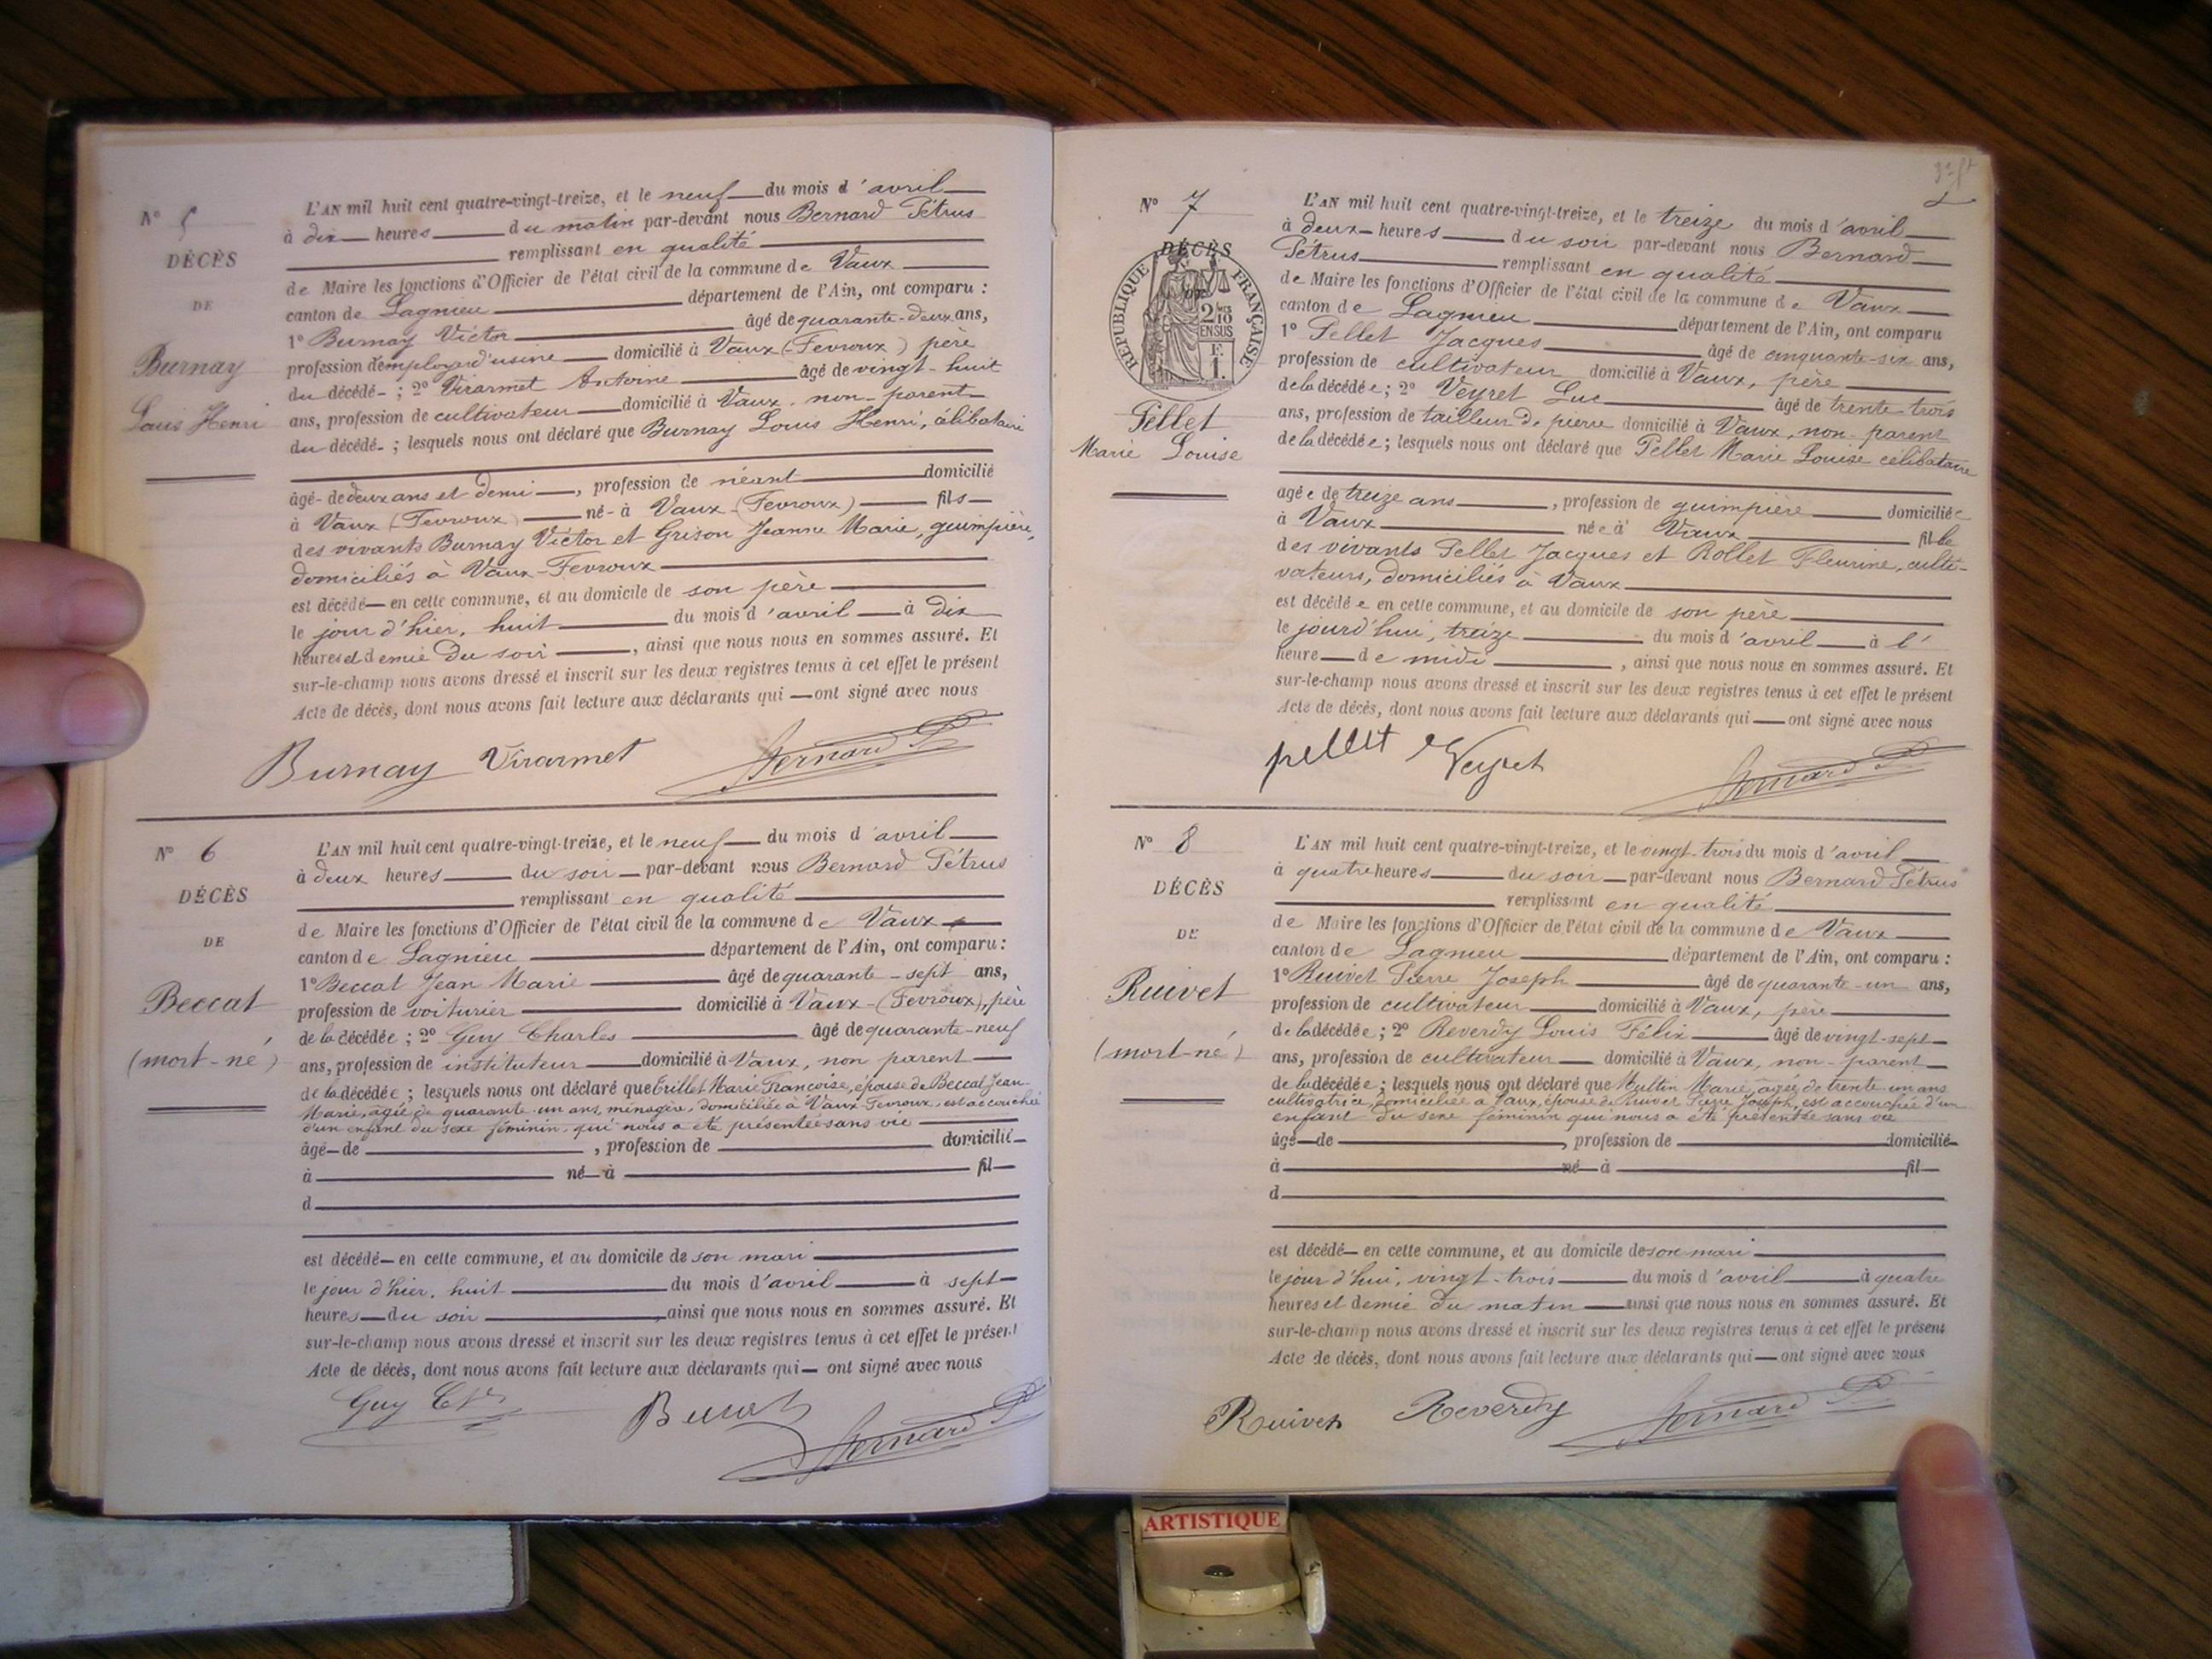 N° 5
DÉCÈS
DE
Burnay
Louis Henri
L'AN mil huit cent quatre-vingt-treize, et le neuf du mois d'avril
à dix heures du matin par-devant nous Bernard Pétrus
remplissant en qualité
de Maire les fonctions d'Officier de l'état civil de la commune de Vaux
canton de Lagnieu département de l'Ain, ont comparu :
1° Burnay Victor âgé de quarante-deux ans,
profession d'employé d'usine domicilié à Vaux (Fevroux) père
du décédé ; 2° Virarmet Antoine âgé de vingt-huit
ans, profession de cultivateur domicilié à Vaux, non-parent
du décédé ; lesquels nous ont déclaré que Burnay Louis Henri, célibataire
âgé de deux ans et demi, profession de néant domicilié
à Vaux (Fevroux) né à Vaux (Fevroux) fils
des vivants Burnay Victor et Grison Jeanne Marie, guimpière,
domiciliés à Vaux-Fevroux
est décédé en cette commune, et au domicile de son père
le jour d'hier, huit du mois d'avril à dix
heures et demie du soir, ainsi que nous nous en sommes assuré. Et
sur-le-champ nous avons dressé et inscrit sur les deux registres tenus à cet effet le présent
Acte de décès, dont nous avons fait lecture aux déclarants qui ont signé avec nous
Burnay Virarmet Bernard P
N° 6
DÉCÈS
DE
Beccat
(mort-né)
L'AN mil huit cent quatre-vingt-treize, et le neuf du mois d'avril
à deux heures du soir par-devant nous Bernard Pétrus
remplissant en qualité
de Maire les fonctions d'Officier de l'état civil de la commune de Vaux
canton de Lagnieu département de l'Ain, ont comparu :
1° Beccat Jean Marie âgé de quarante-sept ans,
profession de voiturier domicilié à Vaux-(Fevroux), père
de la décédée ; 2° Guy Charles âgé de quarante-neuf
ans, profession de instituteur domicilié à Vaux, non parent
de la décédée ; lesquels nous ont déclaré que Marie Françoise, épouse de Beccat Jean
Marie, agée de quarante un ans, ménagère, domiciliée à Vaux-Fevroux, est accouchée
d'un enfant du sexe féminin, qui nous a été présentée sans vie
âgé de , profession de domicilié
à né à fil
d
est décédé en cette commune, et au domicile de son mari
le jour d'hier, huit du mois d'avril à sept
heures du soir, ainsi que nous nous en sommes assuré. Et
sur-le-champ nous avons dressé et inscrit sur les deux registres tenus à cet effet le présent
Acte de décès, dont nous avons fait lecture aux déclarants qui ont signé avec nous
Guy Ch Beccat Bernard P
N° 7
DÉCÈS
DE
RÉPUBLIQUE FRANÇAISE
2/10
EN SUS
F.
1.
Pellet
Marie Louise
L'AN mil huit cent quatre-vingt-treize, et le treize du mois d'avril
à deux heures du soir par-devant nous Bernard
Pétrus remplissant en qualité
de Maire les fonctions d'Officier de l'état civil de la commune de Vaux
canton de Lagnieu département de l'Ain, ont comparu
1° Pellet Jacques âgé de cinquante-six ans,
profession de cultivateur domicilié à Vaux, père
de la décédée ; 2° Veyret Luc âgé de trente-trois
ans, profession de tailleur de pierre domicilié à Vaux, non-parent
de la décédée ; lesquels nous ont déclaré que Pellet Marie Louise célibataire
agée de treize ans, profession de guimpière domiciliée
à Vaux née à Vaux fille
des vivants Pellet Jacques et Rollet Fleurine, culti-
vateurs, domiciliés à Vaux
est décédée en cette commune, et au domicile de son père
le jourd'hui, treize du mois d'avril à l'
heure de midi, ainsi que nous nous en sommes assuré. Et
sur-le-champ nous avons dressé et inscrit sur les deux registres tenus à cet effet le présent
Acte de décès, dont nous avons fait lecture aux déclarants qui ont signé avec nous
pellet Veyret Bernard P
N° 8
DÉCÈS
DE
Ruivet
(mort-né)
L'AN mil huit cent quatre-vingt-treize, et le vingt-trois du mois d'avril
à quatre heures du soir par-devant nous Bernard Pétrus
remplissant en qualité
de Maire les fonctions d'Officier de l'état civil de la commune de Vaux
canton de Lagnieu département de l'Ain, ont comparu :
1° Ruivet Pierre Joseph âgé de quarante-un ans,
profession de cultivateur domicilié à Vaux, père
de la décédée ; 2° Reverdy Louis Félix âgé de vingt-sept
ans, profession de cultivateur domicilié à Vaux, non-parent
de la décédée ; lesquels nous ont déclaré que Multin Marie, agée de trente-un ans
cultivatrice, domiciliée à Vaux, épouse de Ruivet Pierre Joseph, est accouchée d'un
enfant du sexe féminin qui nous a été présentée sans vie
âgé de , profession de domicilié
à né à fil
d
est décédé en cette commune, et au domicile de son mari
le jour d'hui, vingt-trois du mois d'avril à quatre
heures et demie du matin ainsi que nous nous en sommes assuré. Et
sur-le-champ nous avons dressé et inscrit sur les deux registres tenus à cet effet le présent
Acte de décès, dont nous avons fait lecture aux déclarants qui ont signé avec nous
Ruivet Reverdy Bernard P
ARTISTIQUE